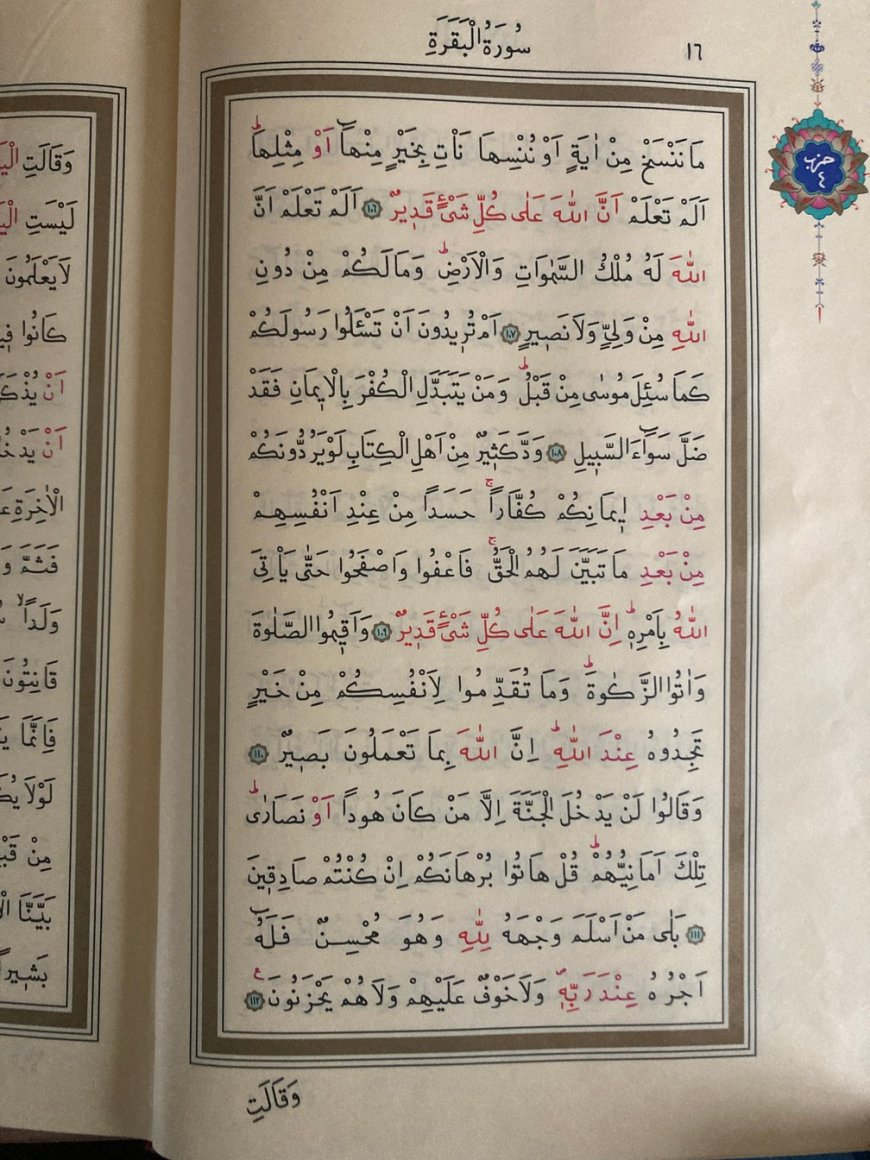 سُورَةُ الْبَقَرَةِ
١٦
حزب
٤
مَا نَنْسَخْ مِنْ اٰيَةٍ اَوْ نُنْسِهَا نَأْتِ بِخَيْرٍ مِنْهَٓا اَوْ مِثْلِهَاۜ
اَلَمْ تَعْلَمْ اَنَّ اللّٰهَ عَلٰى كُلِّ شَيْءٍ قَد۪يرٌ ﴿١٠٦﴾ اَلَمْ تَعْلَمْ اَنَّ
اللّٰهَ لَهُ مُلْكُ السَّمٰوَاتِ وَالْاَرْضِۜ وَمَا لَكُمْ مِنْ دُونِ
اللّٰهِ مِنْ وَلِيٍّ وَلَا نَص۪يرٍ ﴿١٠٧﴾ اَمْ تُر۪يدُونَ اَنْ تَسْـَٔلُوا رَسُولَكُمْ
كَمَا سُئِلَ مُوسٰى مِنْ قَبْلُۜ وَمَنْ يَتَبَدَّلِ الْكُفْرَ بِالْا۪يمَانِ فَقَدْ
ضَلَّ سَوَٓاءَ السَّب۪يلِ ﴿١٠٨﴾ وَدَّ كَث۪يرٌ مِنْ اَهْلِ الْكِتَابِ لَوْ يَرُدُّونَكُمْ
مِنْ بَعْدِ ا۪يمَانِكُمْ كُفَّاراًۚ حَسَداً مِنْ عِنْدِ اَنْفُسِهِمْ
مِنْ بَعْدِ مَا تَبَيَّنَ لَهُمُ الْحَقُّۚ فَاعْفُوا وَاصْفَحُوا حَتّٰى يَأْتِيَ
اللّٰهُ بِاَمْرِه۪ۜ اِنَّ اللّٰهَ عَلٰى كُلِّ شَيْءٍ قَد۪يرٌ ﴿١٠٩﴾ وَاَق۪يمُوا الصَّلٰوةَ
وَاٰتُوا الزَّكٰوةَۜ وَمَا تُقَدِّمُوا لِاَنْفُسِكُمْ مِنْ خَيْرٍ
تَجِدُوهُ عِنْدَ اللّٰهِۜ اِنَّ اللّٰهَ بِمَا تَعْمَلُونَ بَص۪يرٌ ﴿١١٠﴾
وَقَالُوا لَنْ يَدْخُلَ الْجَنَّةَ اِلَّا مَنْ كَانَ هُوداً اَوْ نَصَارٰىۜ
تِلْكَ اَمَانِيُّهُمْۜ قُلْ هَاتُوا بُرْهَانَكُمْ اِنْ كُنْتُمْ صَادِق۪ينَ
﴿١١١﴾ بَلٰى مَنْ اَسْلَمَ وَجْهَهُ لِلّٰهِ وَهُوَ مُحْسِنٌ فَلَهُٓ
اَجْرُهُ عِنْدَ رَبِّه۪ۖ وَلَا خَوْفٌ عَلَيْهِمْ وَلَا هُمْ يَحْزَنُونَ۟ ﴿١١٢﴾
وَقَالَتِ
وَقَالَتِ
لَيْسَتِ
لَا يَعْلَمُونَ
كَانُوا
اَنْ
اَنْ
الْاٰخِرَةِ
فَثَمَّ
وَلَداًۙ
قَانِتُونَ
فَاِنَّمَا
لَوْلَا
مِنْ
بَيَّنَّا
بَش۪يراً